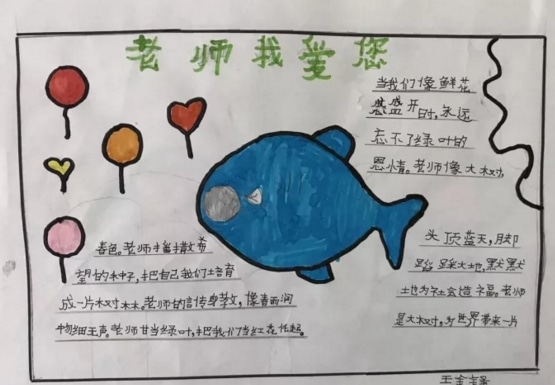 老师我爱您
当我们像鲜花
盛开时,永远
忘不了绿叶的
恩情。老师像大树,
头顶蓝天,脚
踩大地,默默
地为社会造福。老师
是大树,为世界带来一片
春色。老师播撒希
望的种子,把自己我们培育
成一片树林。老师的言传身教,像春雨润
物细无声。老师甘当绿叶,把我们当红花托起。